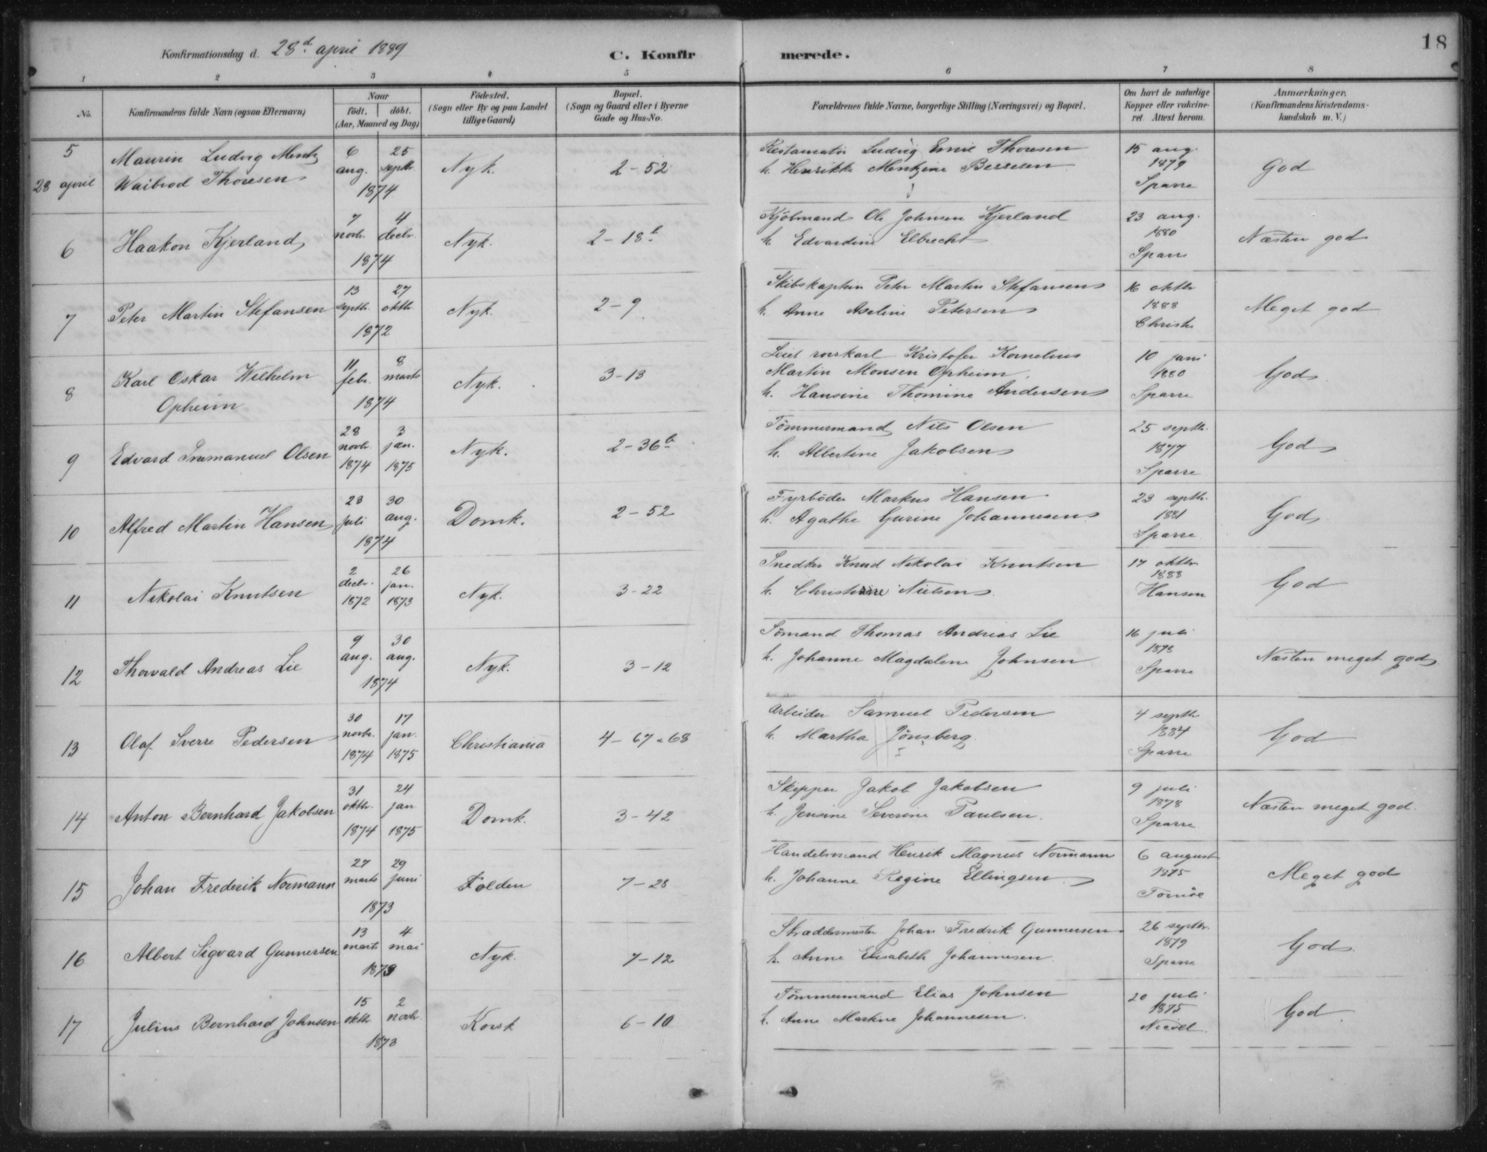 18
Konfirmationsdag d. 28d april 1889
C. Konfirmerede.
1 2 3 4 5 6 7 8
No. Konfirmandens fulde Navn (ogsaa Efternavn)
Naar født. døbt. (Aar, Maaned og Dag)
Fødested. (Sogn eller By og paa Landet tillige Gaard)
Bopæl. (Sogn og Gaard eller i Byerne Gade og Hus-No.
Forældrenes fulde Navne, borgerlige Stilling (Næringsvei) og Bopæl.
Om havt de naturlige Kopper eller vaksineret. Attest herom.
Anmærkninger. (Konfirmandens Kristendomskundskab m. V.)
5 28 april Maurin Ludvig Mentz Waibrod Thoresen 6 aug. 25 septb. 1874 Nyk. 2-52 Ludvig Thoresen h. Henrikke 15 aug. 1879 Sparre God
6 Haakon Kjerland 7 novb. 4 decbr. 1874 Nyk. 2-18b Kjøbmand Ole Johnsen Kjerland h. Edvardine Elbrecht 23 aug. 1880 Sparre Næsten god
7 Peter Martin Stefansen 13 septb. 27 oktb. 1872 Nyk. 2-9 Skibskaptein Peter Martin Stefansen h. Anne Aseline Petersen 16 oktbr 1888 Christie Meget god
8 Karl Oskar Wilhelm Opheim 11 febr. 8 marts 1874 Nyk. 3-13 Kristofer Kornelius Martin Monsen Opheim. h. Hansine Thomine Andersen 10 juni 1880 Sparre God
9 Edvard Immanuel Olsen 28 novb. 1874 3 jan. 1875 Nyk. 2-36b Tømmermand Nils Olsen h. Albertine Jakobsen 25 septb. 1877 Sparre God
10 Alfred Martin Hansen 23 juli 30 aug. 1874 Domk. 2-52 Fyrbøder Markus Hansen h. Agathe Gurine Johannesen 23 septb. 1881 Sparre God
11 Nikolai Knutsen 2 decbr. 1872 26 jan. 1873 Nyk. 3-22 Snedker Knud Nikolai Knutsen h. Christine Nielsen 17 oktbr 1883 Hansen God
12 Thorvald Andreas Lie 9 aug. 30 aug. 1874 Nyk. 3-12 Sømand Thomas Andreas Lie h. Johanne Magdalene Johnsen 16 juli 1878 Sparre Næsten meget god
13 Olaf Sverre Pedersen 30 novb. 1874 17 jan. 1875 Christiania 4-67-68 Arbeider Samuel Pedersen h. Martha Jønsberg. 4 septb 1884 Sparre God
14 Anton Bernhard Jakobsen 31 oktb. 1874 24 jan 1875 Domk. 3-42 Skipper Jakob Jakobsen h. Jensine Severine Paulsen. 9 juli 1878 Sparre Næsten meget god.
15 Johan Frederik Normann 27 marts 29 juni 1873 Folden 7-28 Handelsmand Henrik Magnus Normann h. Johanne Regine Ellingsen 6 august 1875 Meget god
16 Albert Sigvard Gunnersen 13 marts 4 mai 1873 Nyk. 7-12 Skræddermester Johan Fredrik Gunnersen h. Anne Elisabeth Johannesen. 26 septbr. 1879 Sparre God
17 Julius Bernhard Johnsen 15 oktb 2 novb 1873 Korsk 6-10 Tømmermand Elias Johnsen h. Anne Martine Johannesen. 20 juli 1875 God